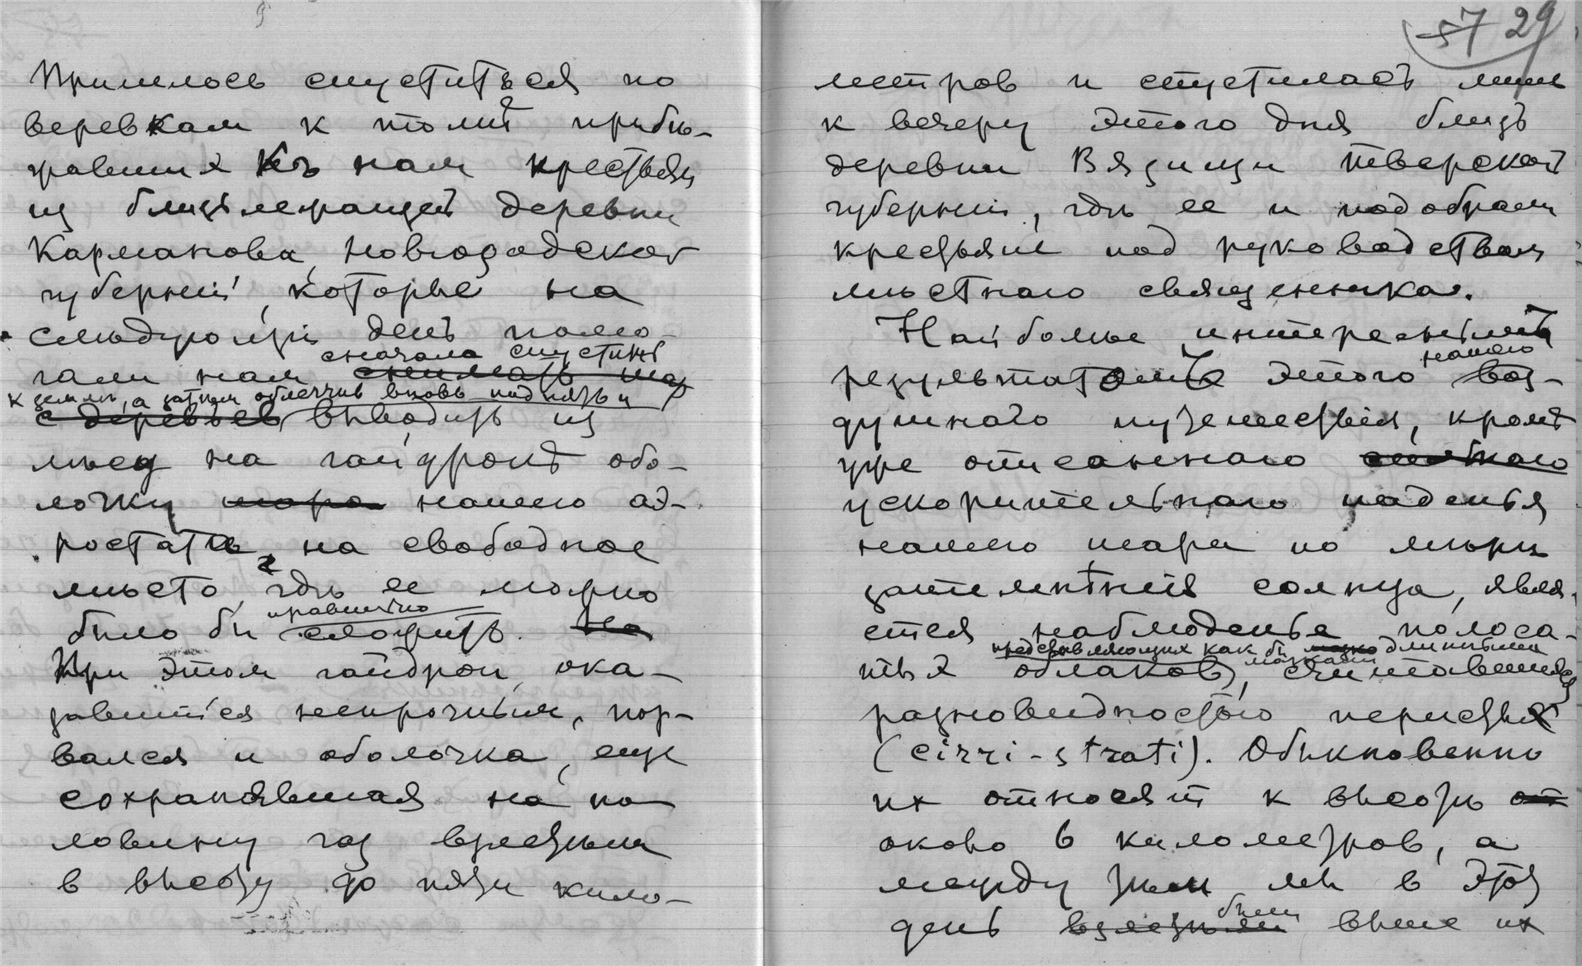 Пришлось спуститься по
веревкам к толпѣ прибы-
жавших къ нам крестьян
из близьлежащей деревни
Карманова, Новгородской
губерніи, которые на
слѣдующій день помо-
сначала спустить
гали нам снимать шар
к землѣ, а затѣм облегчив вновь поднять и
с деревьев выводить из
лѣса на гайдропѣ обо-
лочку шара нашего аэ-
ростата, на свободное
мѣсто, гдѣ ее можно
правильно
было бы сложить. На
При этом гайдроп, ока-
завшійся непрочным, пор-
вался и оболочка, еще
сохранявшая на по-
ловину газ взлетѣла
в высоту до пяти кило-
57 29
метров и спустилась лишь
к вечеру этого дня близь
деревни Вязищи Тверской
губерніи, гдѣ ее и подобрали
крестьяне под руководством
мѣстнаго священника.
Наиболѣе интереснымъ
нашего
результатомъ этого воз-
душнаго путешествія, кромѣ
уже описаннаго
ускорительнаго паденья
нашего шара по мѣрѣ
затемнѣнія солнца, явля-
ется наблюденье полоса-
представляющих как бы длинными
тых облаков, считавшихся
разновидностью перистых
(cirri-strati). Обыкновенно
их относят к высотѣ от
около 6 километров, а
между тѣм мы в этот
были
день взлетѣли выше их